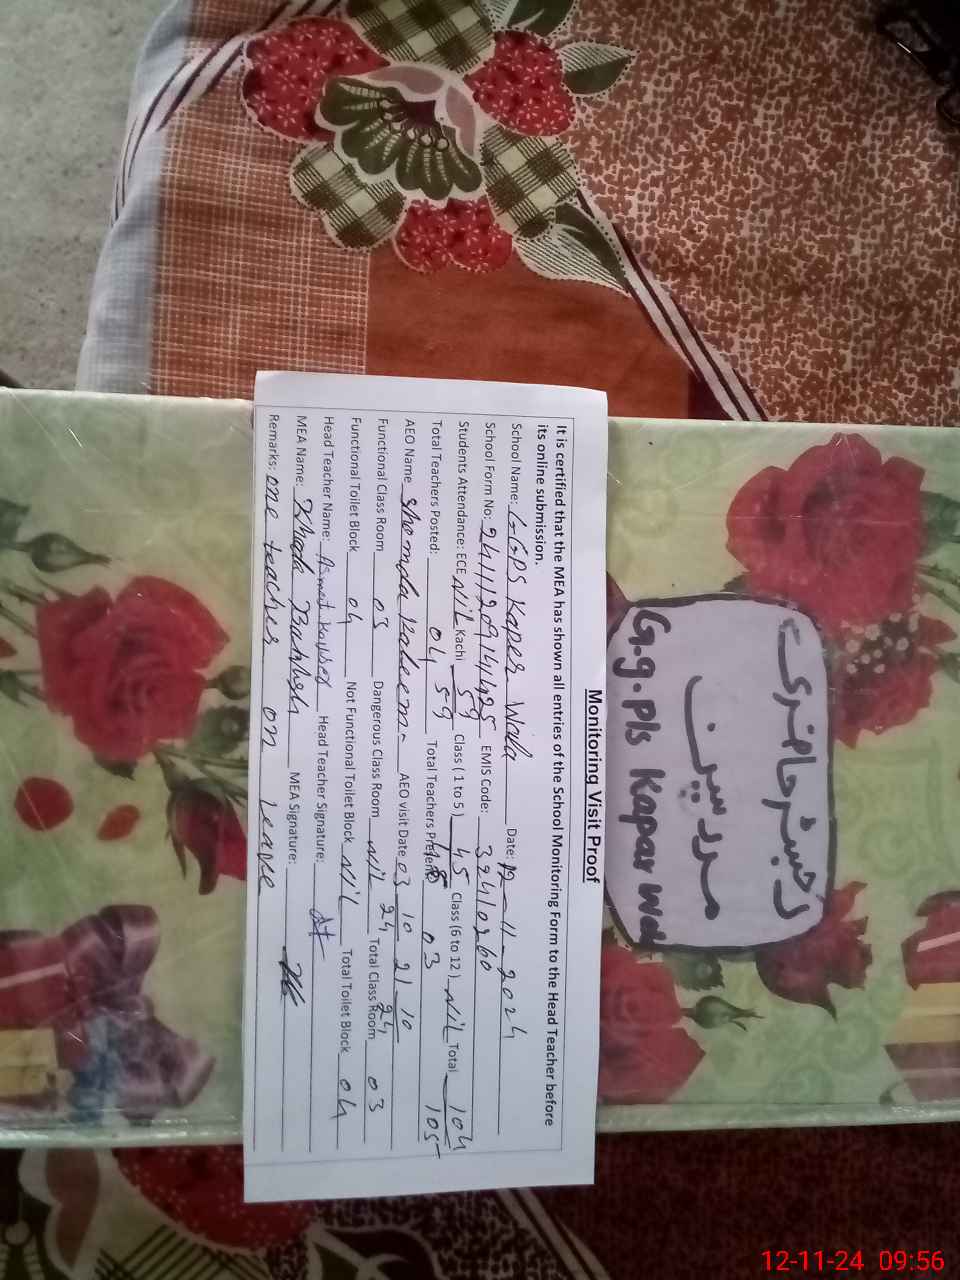 رجسٹر حاضری
مدرسین
G.g.pls Kapar Wala
Monitoring Visit Proof
It is certified that the MEA has shown all entries of the School Monitoring Form to the Head Teacher before
its online submission.
School Name: GGPS Kaper Wala Date: 12-11-2024
School Form No: EMIS Code: 32410260
Students Attendance: ECE Nil Kachi 59/59 Class ( 1 to 5 ) 45 Class (6 to 12 ) Nil Total 104/105
Total Teachers Posted: 04 Total Teachers Present: 03
AEO Name Shomila Kaleem AEO visit Date 03/24 10 21/24 10
Functional Class Room 03 Dangerous Class Room Nil Total Class Room 03
Functional Toilet Block 04 Not Functional Toilet Block Nil Total Toilet Block 04
Head Teacher Name: Asmat Kousar Head Teacher Signature:
MEA Name: Khuda Bukhsh MEA Signature:
Remarks: one teacher on Leave
12-11-24 09:56